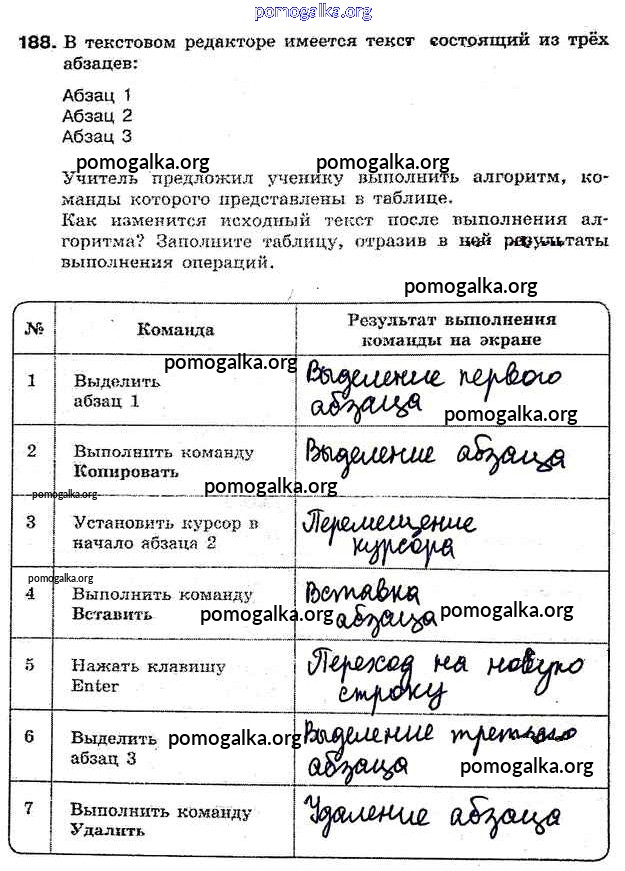 pomogalka.org
188. В текстовом редакторе имеется текст состоящий из трёх
абзацев:
Абзац 1
Абзац 2
Абзац 3
pomogalka.org pomogalka.org
Учитель предложил ученику выполнить алгоритм, ко-
манды которого представлены в таблице.
Как изменится исходный текст после выполнения ал-
горитма? Заполните таблицу, отразив в ней результаты
выполнения операций.
pomogalka.org
№ Команда Результат выполнения
команды на экране
pomogalka.org
1 Выделить Выделение первого
абзац 1 абзаца
pomogalka.org
2 Выполнить команду Выделение абзаца
Копировать
pomogalka.org
pomogalka.org
3 Установить курсор в Перемещение
начало абзаца 2 курсора
pomogalka.org
4 Выполнить команду Вставка
Вставить абзаца
pomogalka.org pomogalka.org
5 Нажать клавишу Переход на новую
Enter строку
6 Выделить Выделение третьего
абзац 3 абзаца
pomogalka.org
pomogalka.org
7 Выполнить команду Удаление абзаца
Удалить